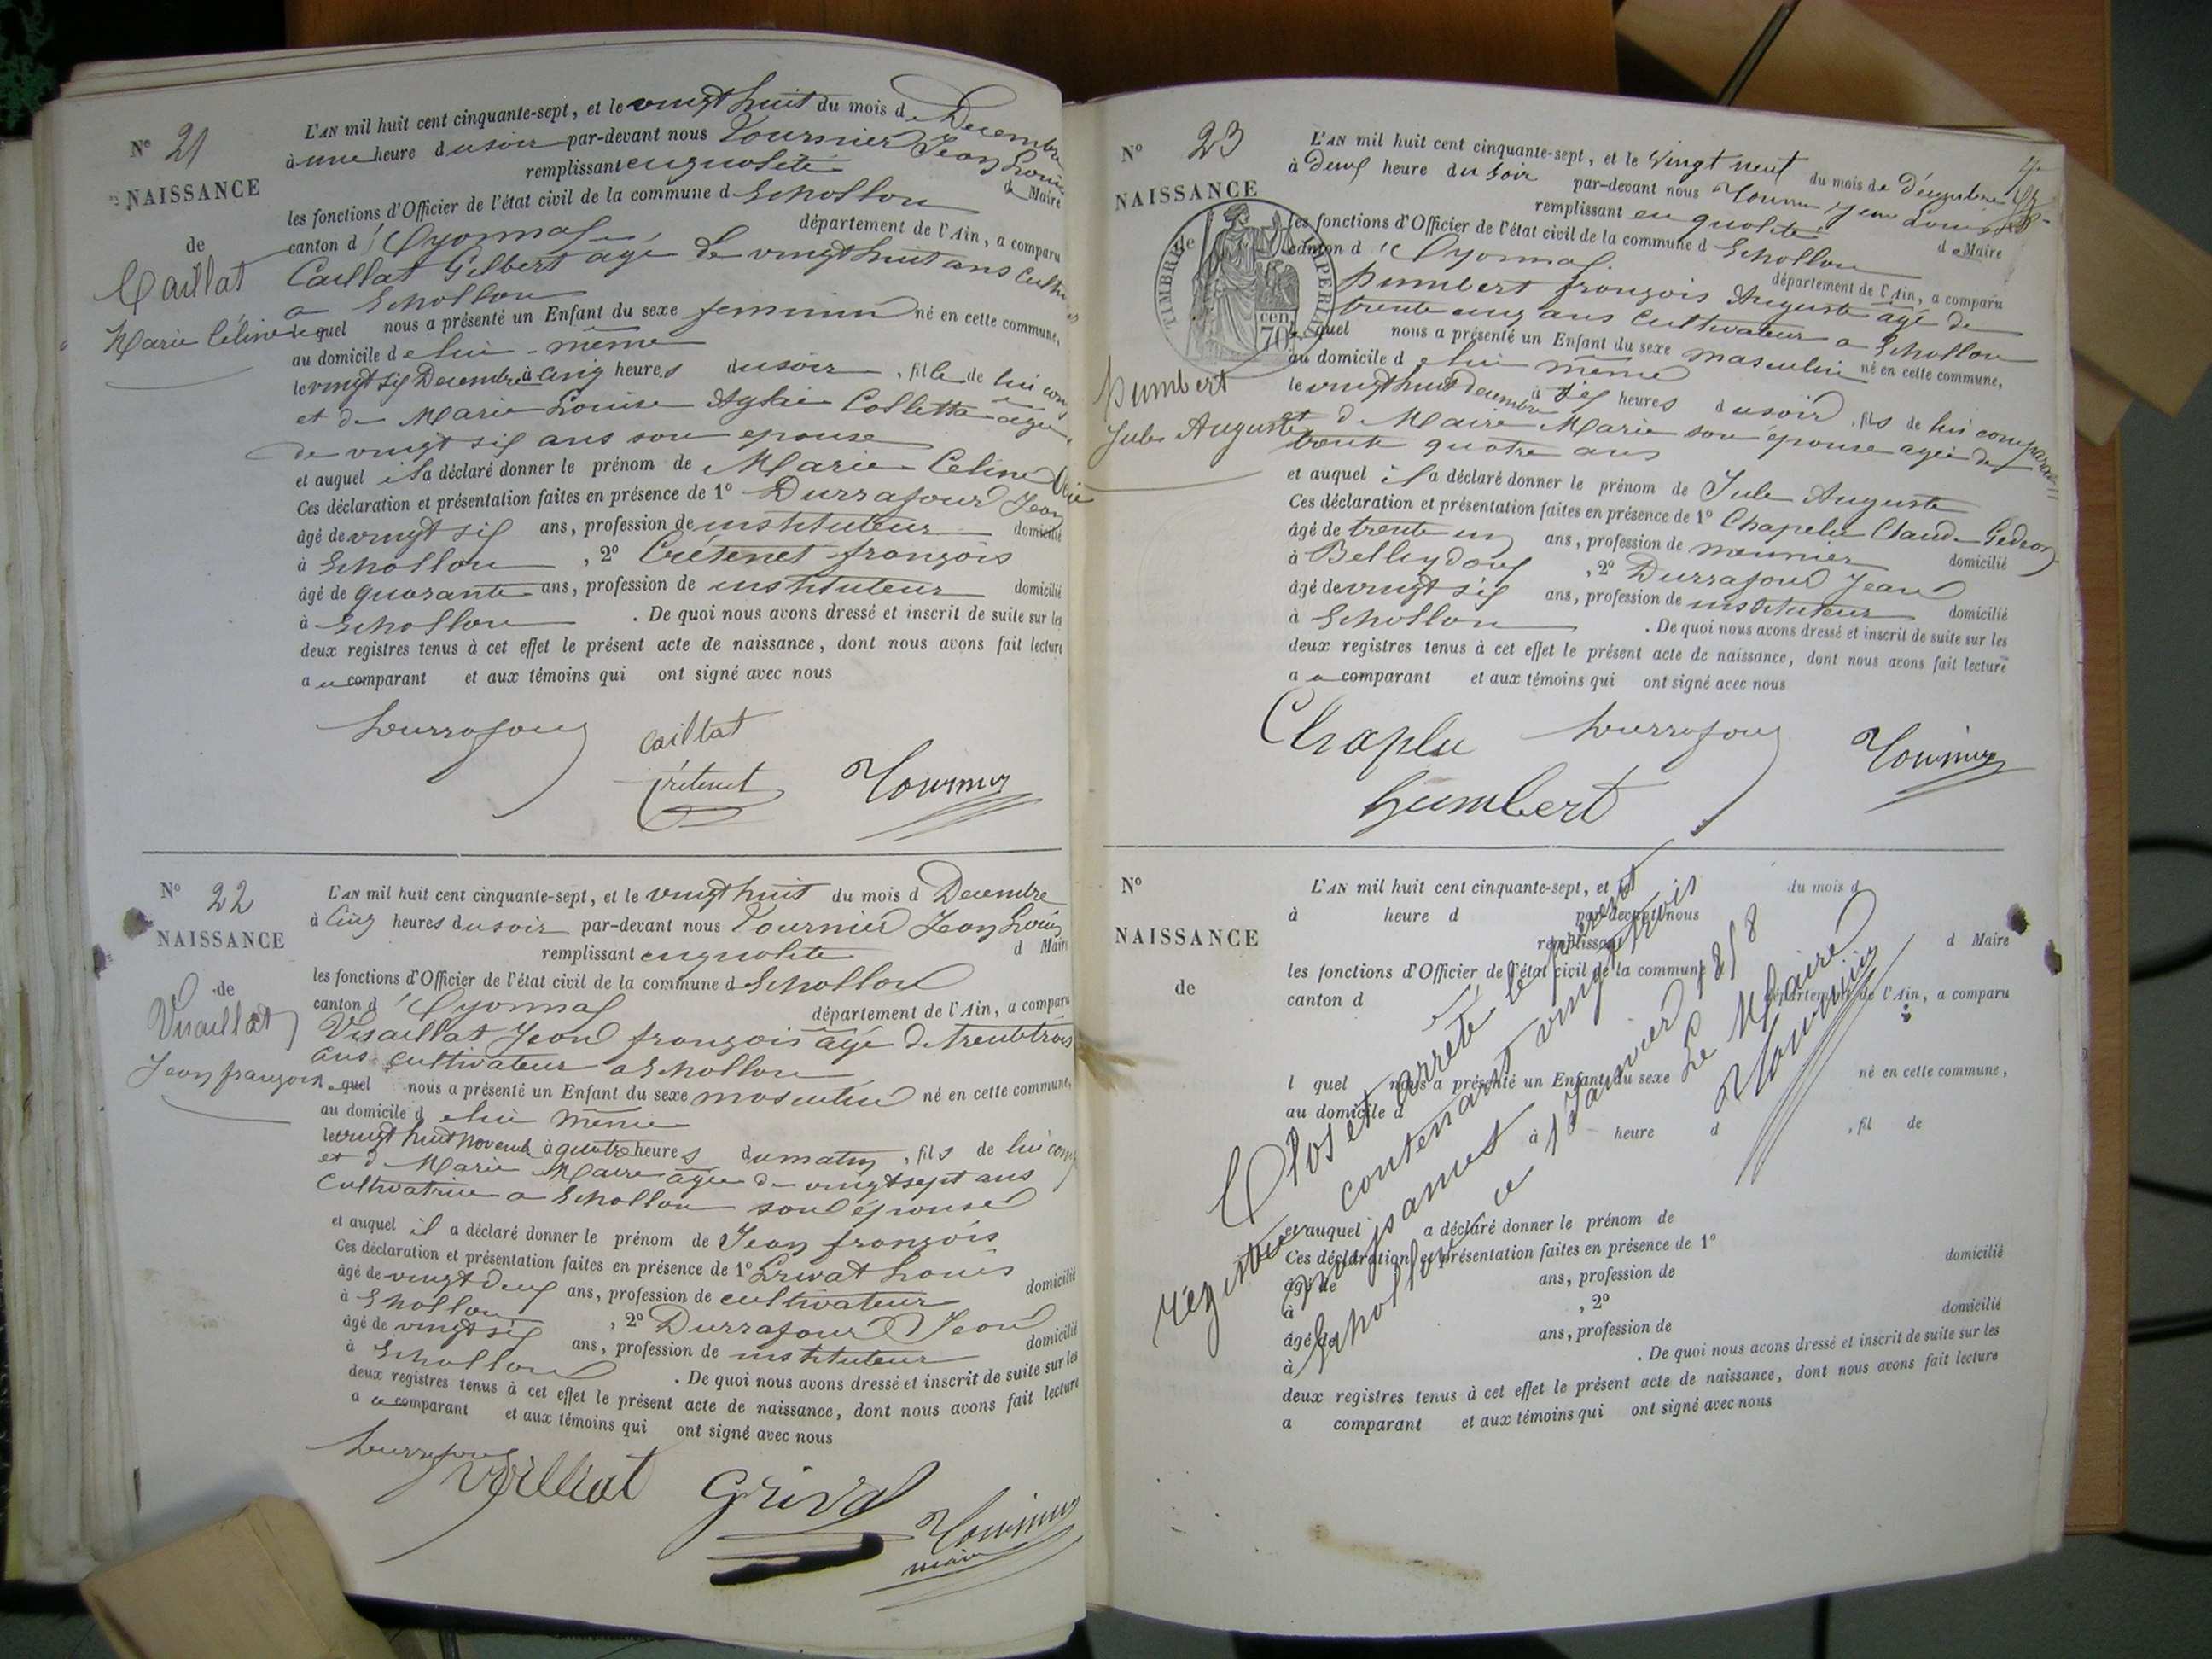 N° 21
NAISSANCE
de
Caillat
Marie Céline
L'AN mil huit cent cinquante-sept, et le vingt huit du mois d Decembre
à une heure du soir par-devant nous Tournier Jean Louis
remplissant en qualité d Maire
les fonctions d'Officier de l'état civil de la commune d Echallon
canton d'Oyonnax département de l'Ain, a comparu
Caillat Gelbert agé de vingt huit ans
a Echallon
lequel nous a présenté un Enfant du sexe feminin né en cette commune,
au domicile de lui-même
le vingt six Decembre à cinq heures du soir, fille de lui
et de Marie Louise Aglaé Colletta agée
de vingt six ans son epouse
et auquel il a déclaré donner le prénom de Marie Céline
Ces déclaration et présentation faites en présence de 1° Durrafour Jean
âgé de vingt six ans, profession de instituteur domicilié
à Echallon, 2° Crétenet françois
âgé de quarante ans, profession de instituteur domicilié
à Echallon. De quoi nous avons dressé et inscrit de suite sur les
deux registres tenus à cet effet le présent acte de naissance, dont nous avons fait lecture
au comparant et aux témoins qui ont signé avec nous
Durrafour Caillat
Crétenet Tournier
N° 22
NAISSANCE
de
Vuaillat
Jean françois
L'AN mil huit cent cinquante-sept, et le vingt huit du mois d Decembre
à cinq heures du soir par-devant nous Tournier Jean Louis
remplissant en qualité d Maire
les fonctions d'Officier de l'état civil de la commune d Echallon
canton d'Oyonnax département de l'Ain, a comparu
Vuaillat Jean françois agé de trente trois
ans cultivateur a Echallon
lequel nous a présenté un Enfant du sexe masculin né en cette commune,
au domicile de lui même
le vingt huit à quatre heures du matin, fils de lui
et d Marie Maire agée de vingt sept ans
Cultivatrice a Echallon son épouse
et auquel il a déclaré donner le prénom de Jean françois
Ces déclaration et présentation faites en présence de 1° Grivat Louis
âgé de vingt deux ans, profession de cultivateur domicilié
à Echallon, 2° Durrafour Jean
âgé de vingt six ans, profession de instituteur domicilié
à Echallon. De quoi nous avons dressé et inscrit de suite sur les
deux registres tenus à cet effet le présent acte de naissance, dont nous avons fait lecture
au comparant et aux témoins qui ont signé avec nous
Durrafour
Grivat Tournier
maire
N° 23
NAISSANCE
de
TIMBRE IMPERIAL
70 cen.
humbert
Jule Auguste
L'AN mil huit cent cinquante-sept, et le vingt neuf du mois de Décembre
à Deux heure du soir par-devant nous Tournier Jean Louis
remplissant en qualité d e Maire
les fonctions d'Officier de l'état civil de la commune d Echallon
canton d'Oyonnax département de l'Ain, a comparu
humbert françois Auguste agé de
trente cinq ans cultivateur a Echallon
lequel nous a présenté un Enfant du sexe masculin né en cette commune,
au domicile de lui même
le vingt huit decembre à dix heures du soir, fils de lui comparant
et d Maire Marie son épouse agée de
trente quatre ans
et auquel il a déclaré donner le prénom de Jule Auguste
Ces déclaration et présentation faites en présence de 1° Chapelu Claude Gedeon
âgé de trente un ans, profession de meunier domicilié
à Belleydoux, 2° Durrafour Jean
âgé de vingt six ans, profession de instituteur domicilié
à Echallon. De quoi nous avons dressé et inscrit de suite sur les
deux registres tenus à cet effet le présent acte de naissance, dont nous avons fait lecture
au comparant et aux témoins qui ont signé avec nous
Chaplu Durrafour Tournier
humbert
N°
NAISSANCE
de
L'AN mil huit cent cinquante-sept, et le du mois d
à heure d par-devant nous
remplissant d Maire
les fonctions d'Officier de l'état civil de la commune
canton d département de l'Ain, a comparu
l quel nous a présenté un Enfant du sexe né en cette commune,
au domicile d
à heure d , fil de
et auquel a déclaré donner le prénom de
Ces déclaration et présentation faites en présence de 1°
âgé de ans, profession de domicilié
à , 2°
âgé de ans, profession de domicilié
à . De quoi nous avons dressé et inscrit de suite sur les
deux registres tenus à cet effet le présent acte de naissance, dont nous avons fait lecture
a comparant et aux témoins qui ont signé avec nous
Clos et arrêté le présent
régistre contenant vingt trois
Echallon ce 1 Janvier 1858
Le Maire
Tournier